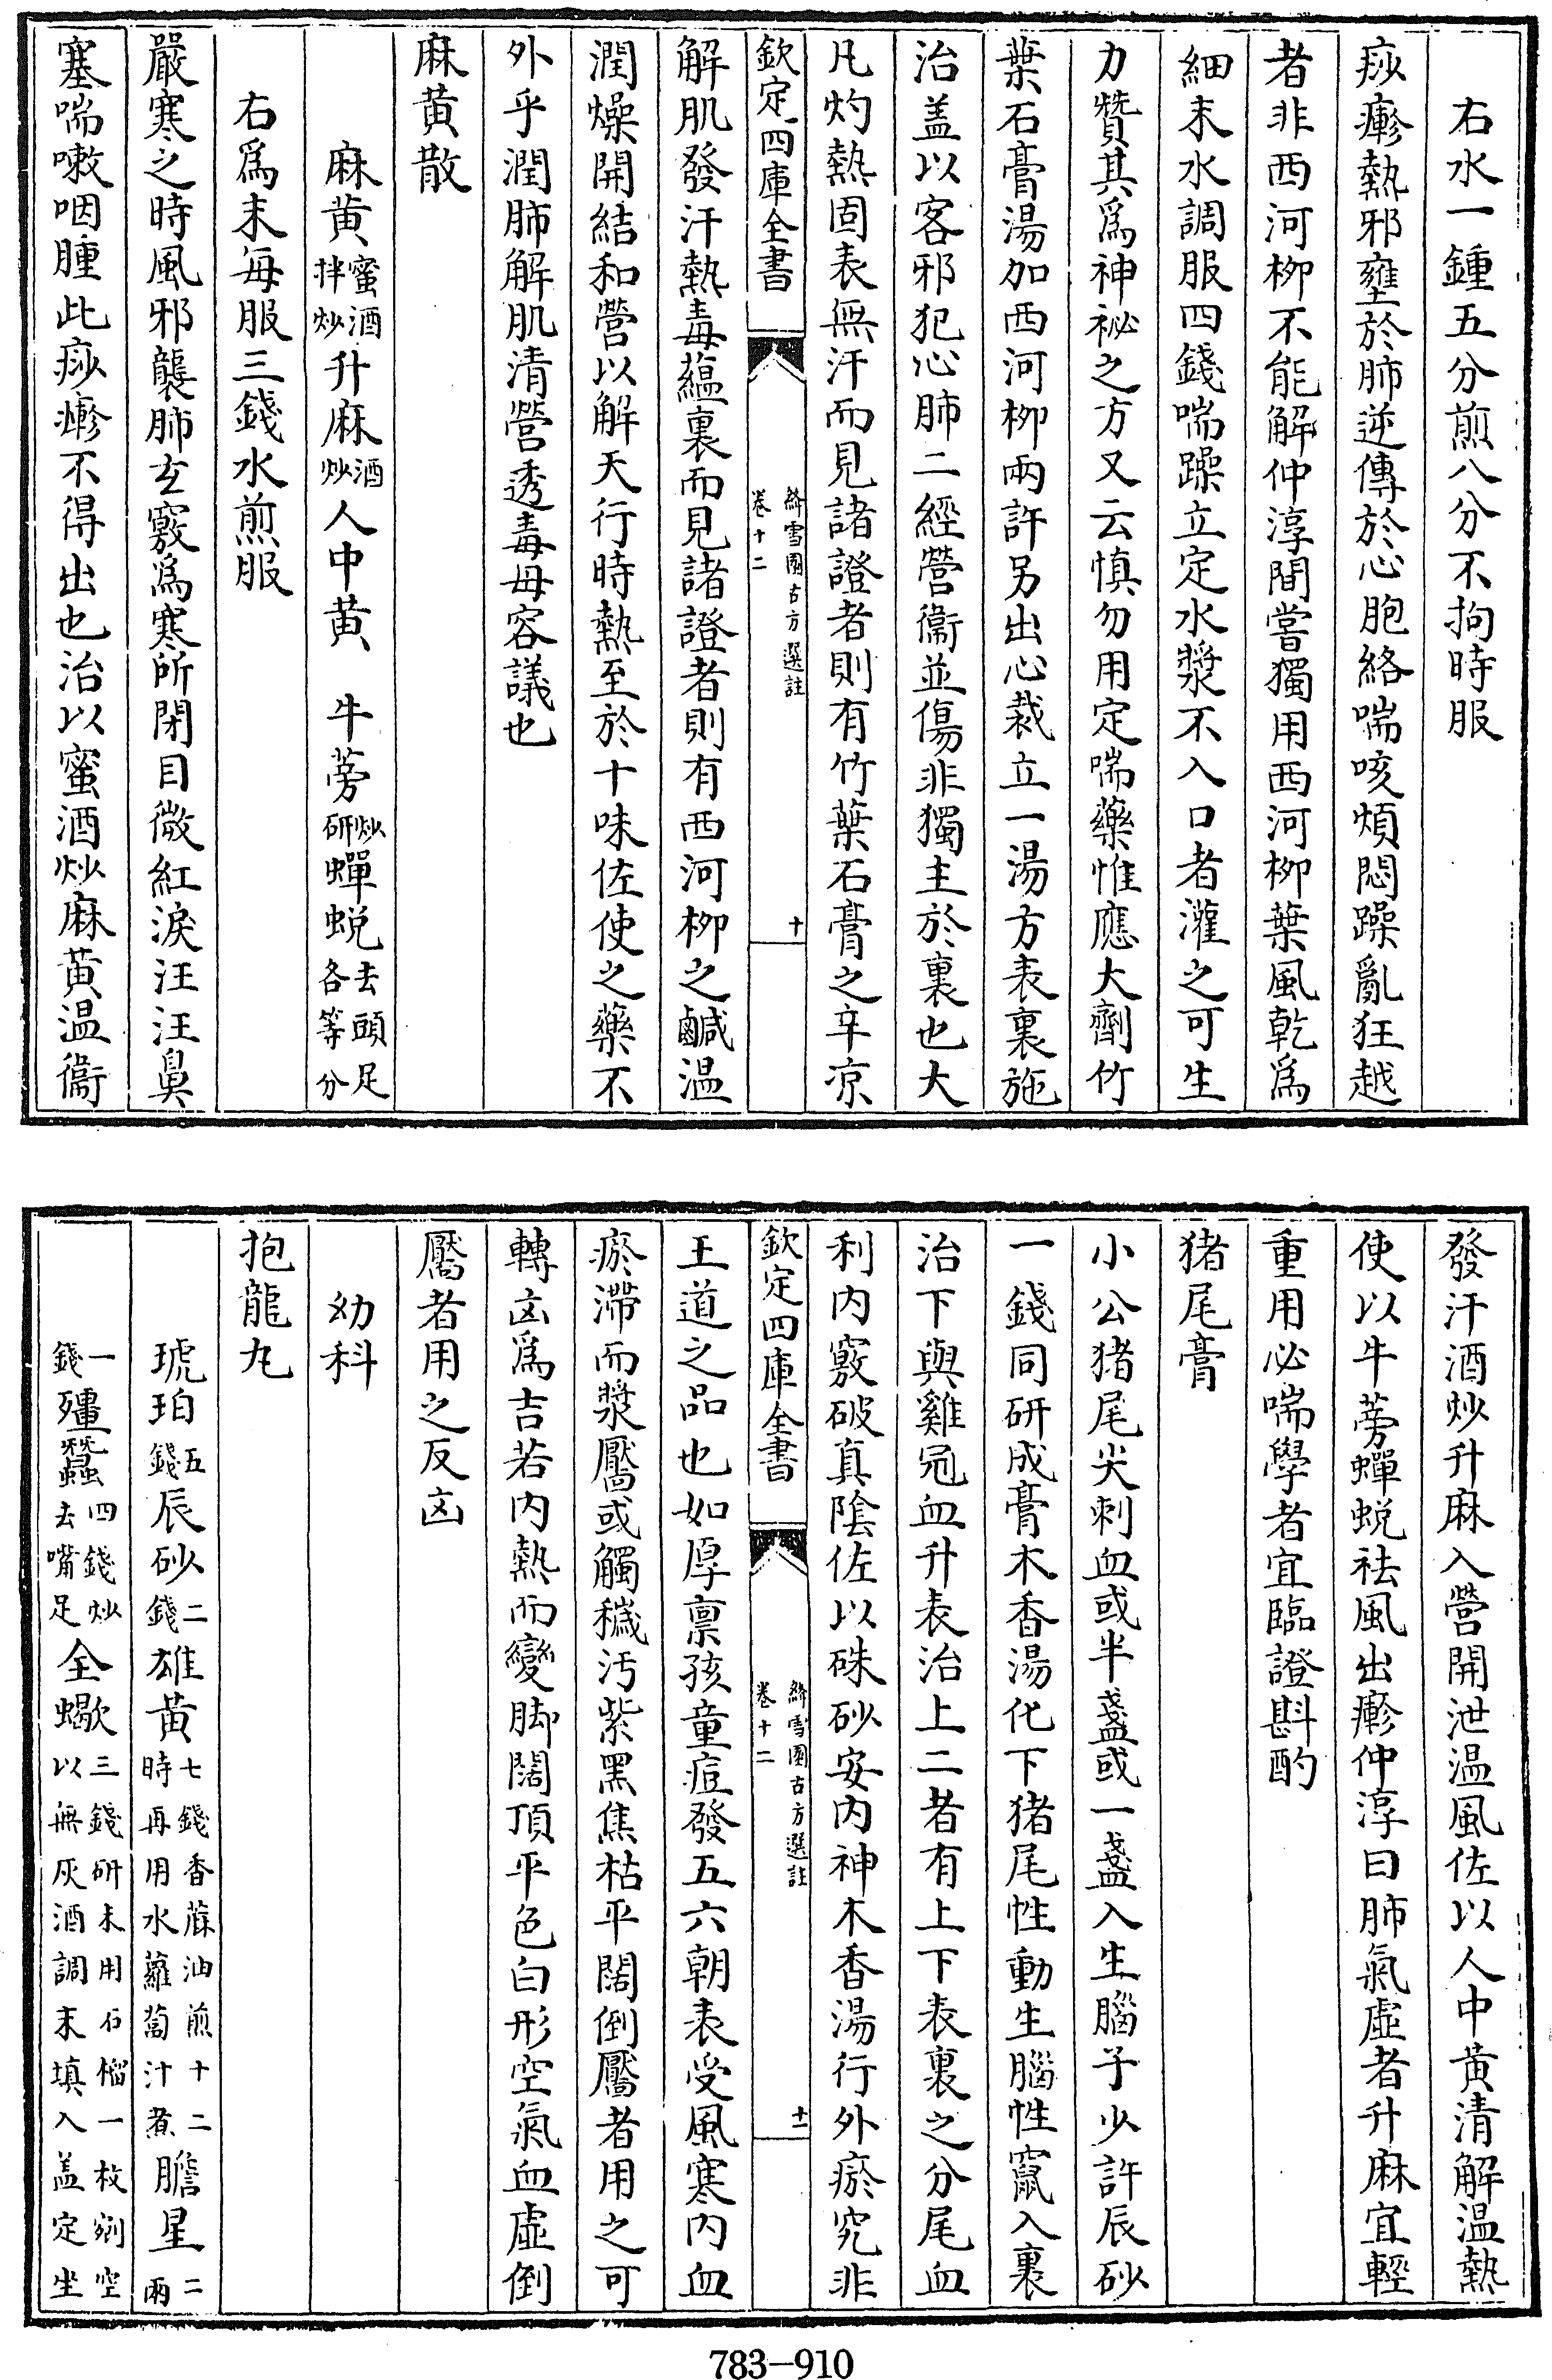 右水一鍾五分煎八分不拘時服
痧瘮熱邪壅於肺逆傳於心胞絡喘咳煩悶躁亂狂越
者非西河栁不能解仲淳間嘗獨用西河栁葉風乾爲
細末水調服四錢喘躁立定水漿不入口者灌之可生
力贊其爲神祕之方又云慎勿用定喘藥惟應大劑竹
葉石膏湯加西河栁兩許另出心裁立一湯方表裏施
治盖以客邪犯心肺二經營衞並傷非獨主於裏也大
凡灼熱固表無汗而見諸證者則有竹葉石膏之辛凉
欽定四庫全書
絳雪園古方選註
卷十二
十
解肌發汗熱毒蘊裏而見諸證者則有西河栁之鹹温
潤燥開結和營以解天行時熱至於十味佐使之藥不
外乎潤肺解肌清營透毒毋容議也
麻黄散
麻黄蜜酒拌炒升麻酒炒人中黄 牛蒡炒研蟬蜕去頭足各等分
右爲末每服三錢水煎服
嚴寒之時風邪襲肺玄竅爲寒所閉目微紅淚汪汪鼻
塞喘嗽咽腫此痧瘮不得出也治以蜜酒炒麻黄温衞
發汗酒炒升麻入營開泄温風佐以人中黄清解温熱
使以牛蒡蟬蜕祛風出瘮仲淳曰肺氣虛者升麻宜輕
重用必喘學者宜臨證斟酌
猪尾膏
小公猪尾尖刺血或半盞或一盞入生腦子少許辰砂
一錢同研成膏木香湯化下猪尾性動生腦性竄入裏
治下與雞冠血升表治上二者有上下表裏之分尾血
利内竅破真陰佐以硃砂安内神木香湯行外瘀究非
欽定四庫全書
絳雪園古方選註
卷十二
十一
王道之品也如厚禀孩童痘發五六朝表受風寒内血
瘀滯而漿靨或觸穢汚紫黑焦枯平闊倒靨者用之可
轉凶爲吉若内熱而變脚闊頂平色白形空氣血虛倒
靨者用之反凶
幼科
抱龍丸
琥珀五錢辰砂二錢雄黄七錢香蔴油煎十二時再用水蘿蔔汁煮膽星二兩
一錢殭蠶四錢炒去嘴足全蝎三錢研末用石榴一枚剜空以無灰酒調末填入盖定坐
783-910